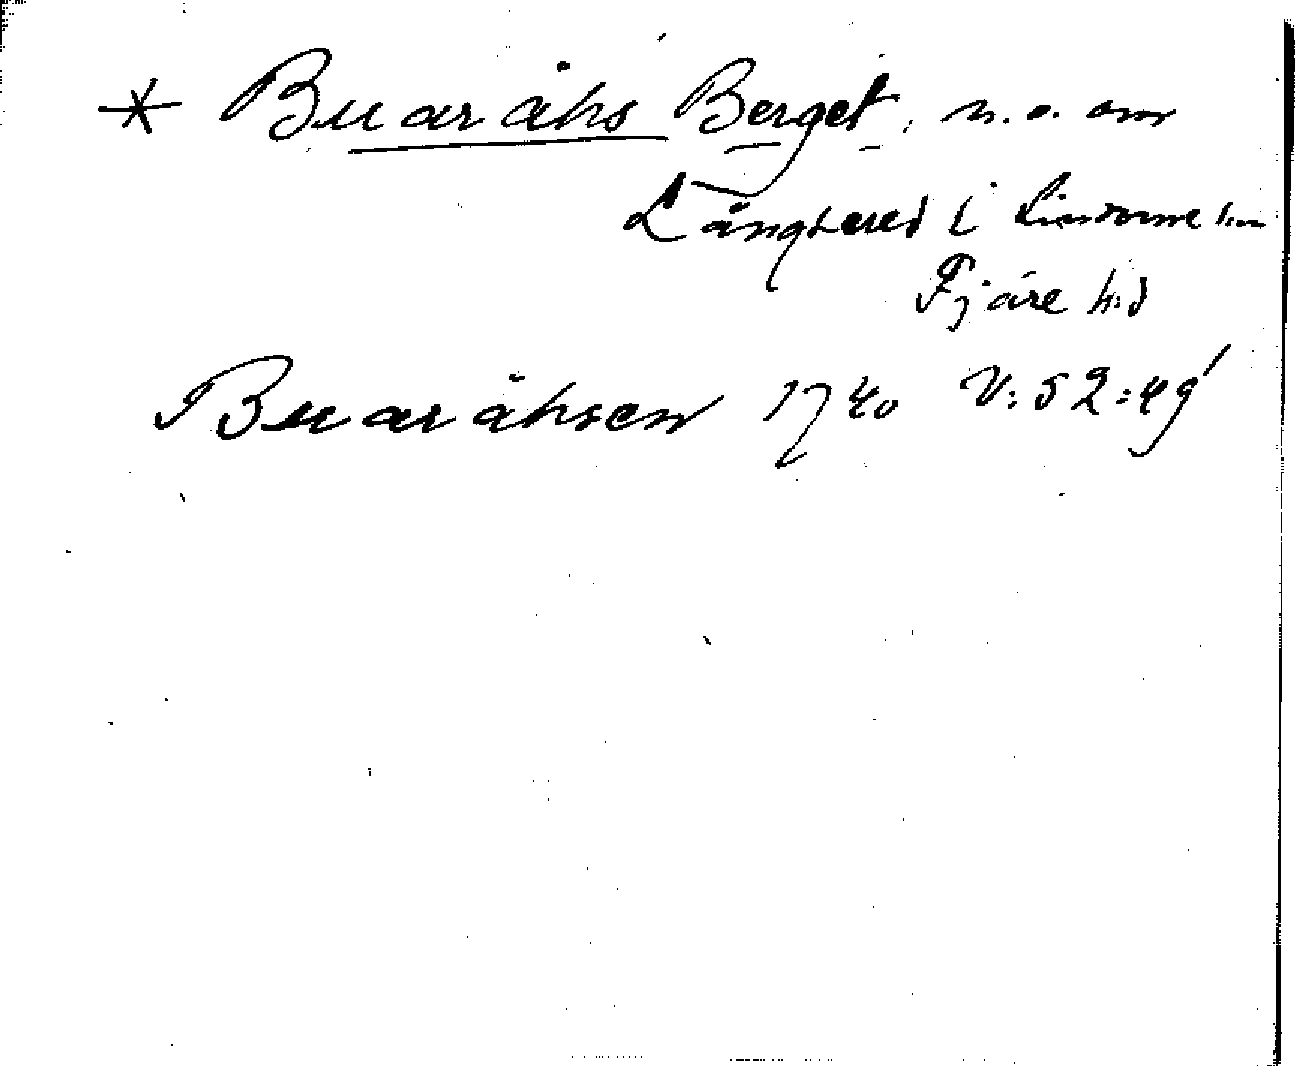 * Buaråhs Berget, n.o. om
Långåsred i Lindome sn
Fjäre hd
Buaråhsen 1740 V:52:49